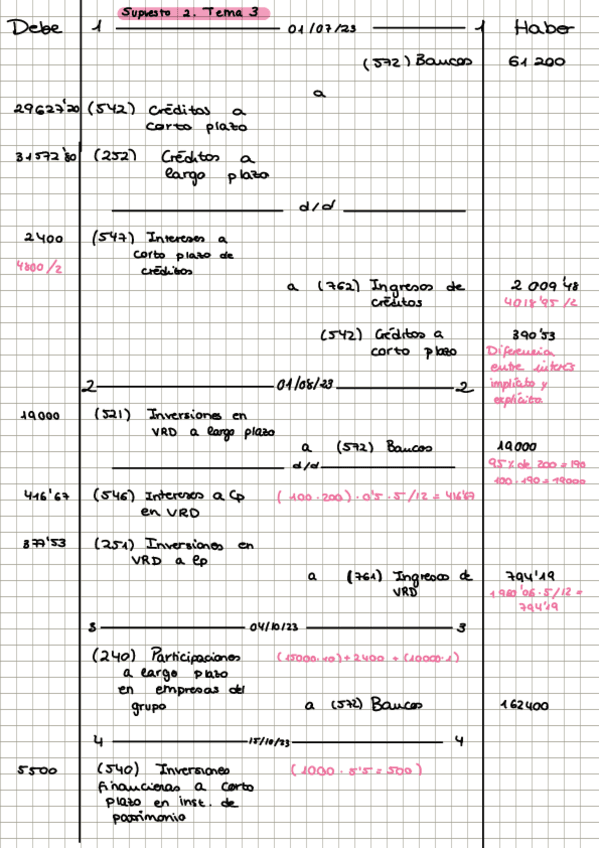 Supuesto 2. Tema 3
Debe 1 01/07/23 1 Haber
(572) Bancos 61 200
a
29627'20 (542) Créditos a
corto plazo
31572'80 (252) Créditos a
largo plazo
d/d
2400 (547) Intereses a
4800/2 corto plazo de
créditos
a (762) Ingresos de 2 009'48
créditos 4018'95 /2
(542) Créditos a 390'53
corto plazo Diferencia
entre interés
2 01/08/23 2 implícito y
explícito
19000 (521) Inversiones en
VRD a largo plazo
a (572) Bancos 19000
d/d 95% de 200 = 190
100 · 190 = 19000
416'67 (546) Intereses a Cp (100 · 200) · 0'5 · 5/12 = 416'67
en VRD
377'53 (251) Inversiones en
VRD a lp
a (761) Ingresos de 794'19
VRD 1960'06 · 5/12 =
794'19
3 04/10/23 3
(240) Participaciones (15000·10)+2400 + (10000·1)
a largo plazo
en empresas del
grupo a (572) Bancos 162400
4 15/10/23 4
5500 (540) Inversiones (1000 · 5'5 = 500)
financieras a corto
plazo en inst. de
patrimonio